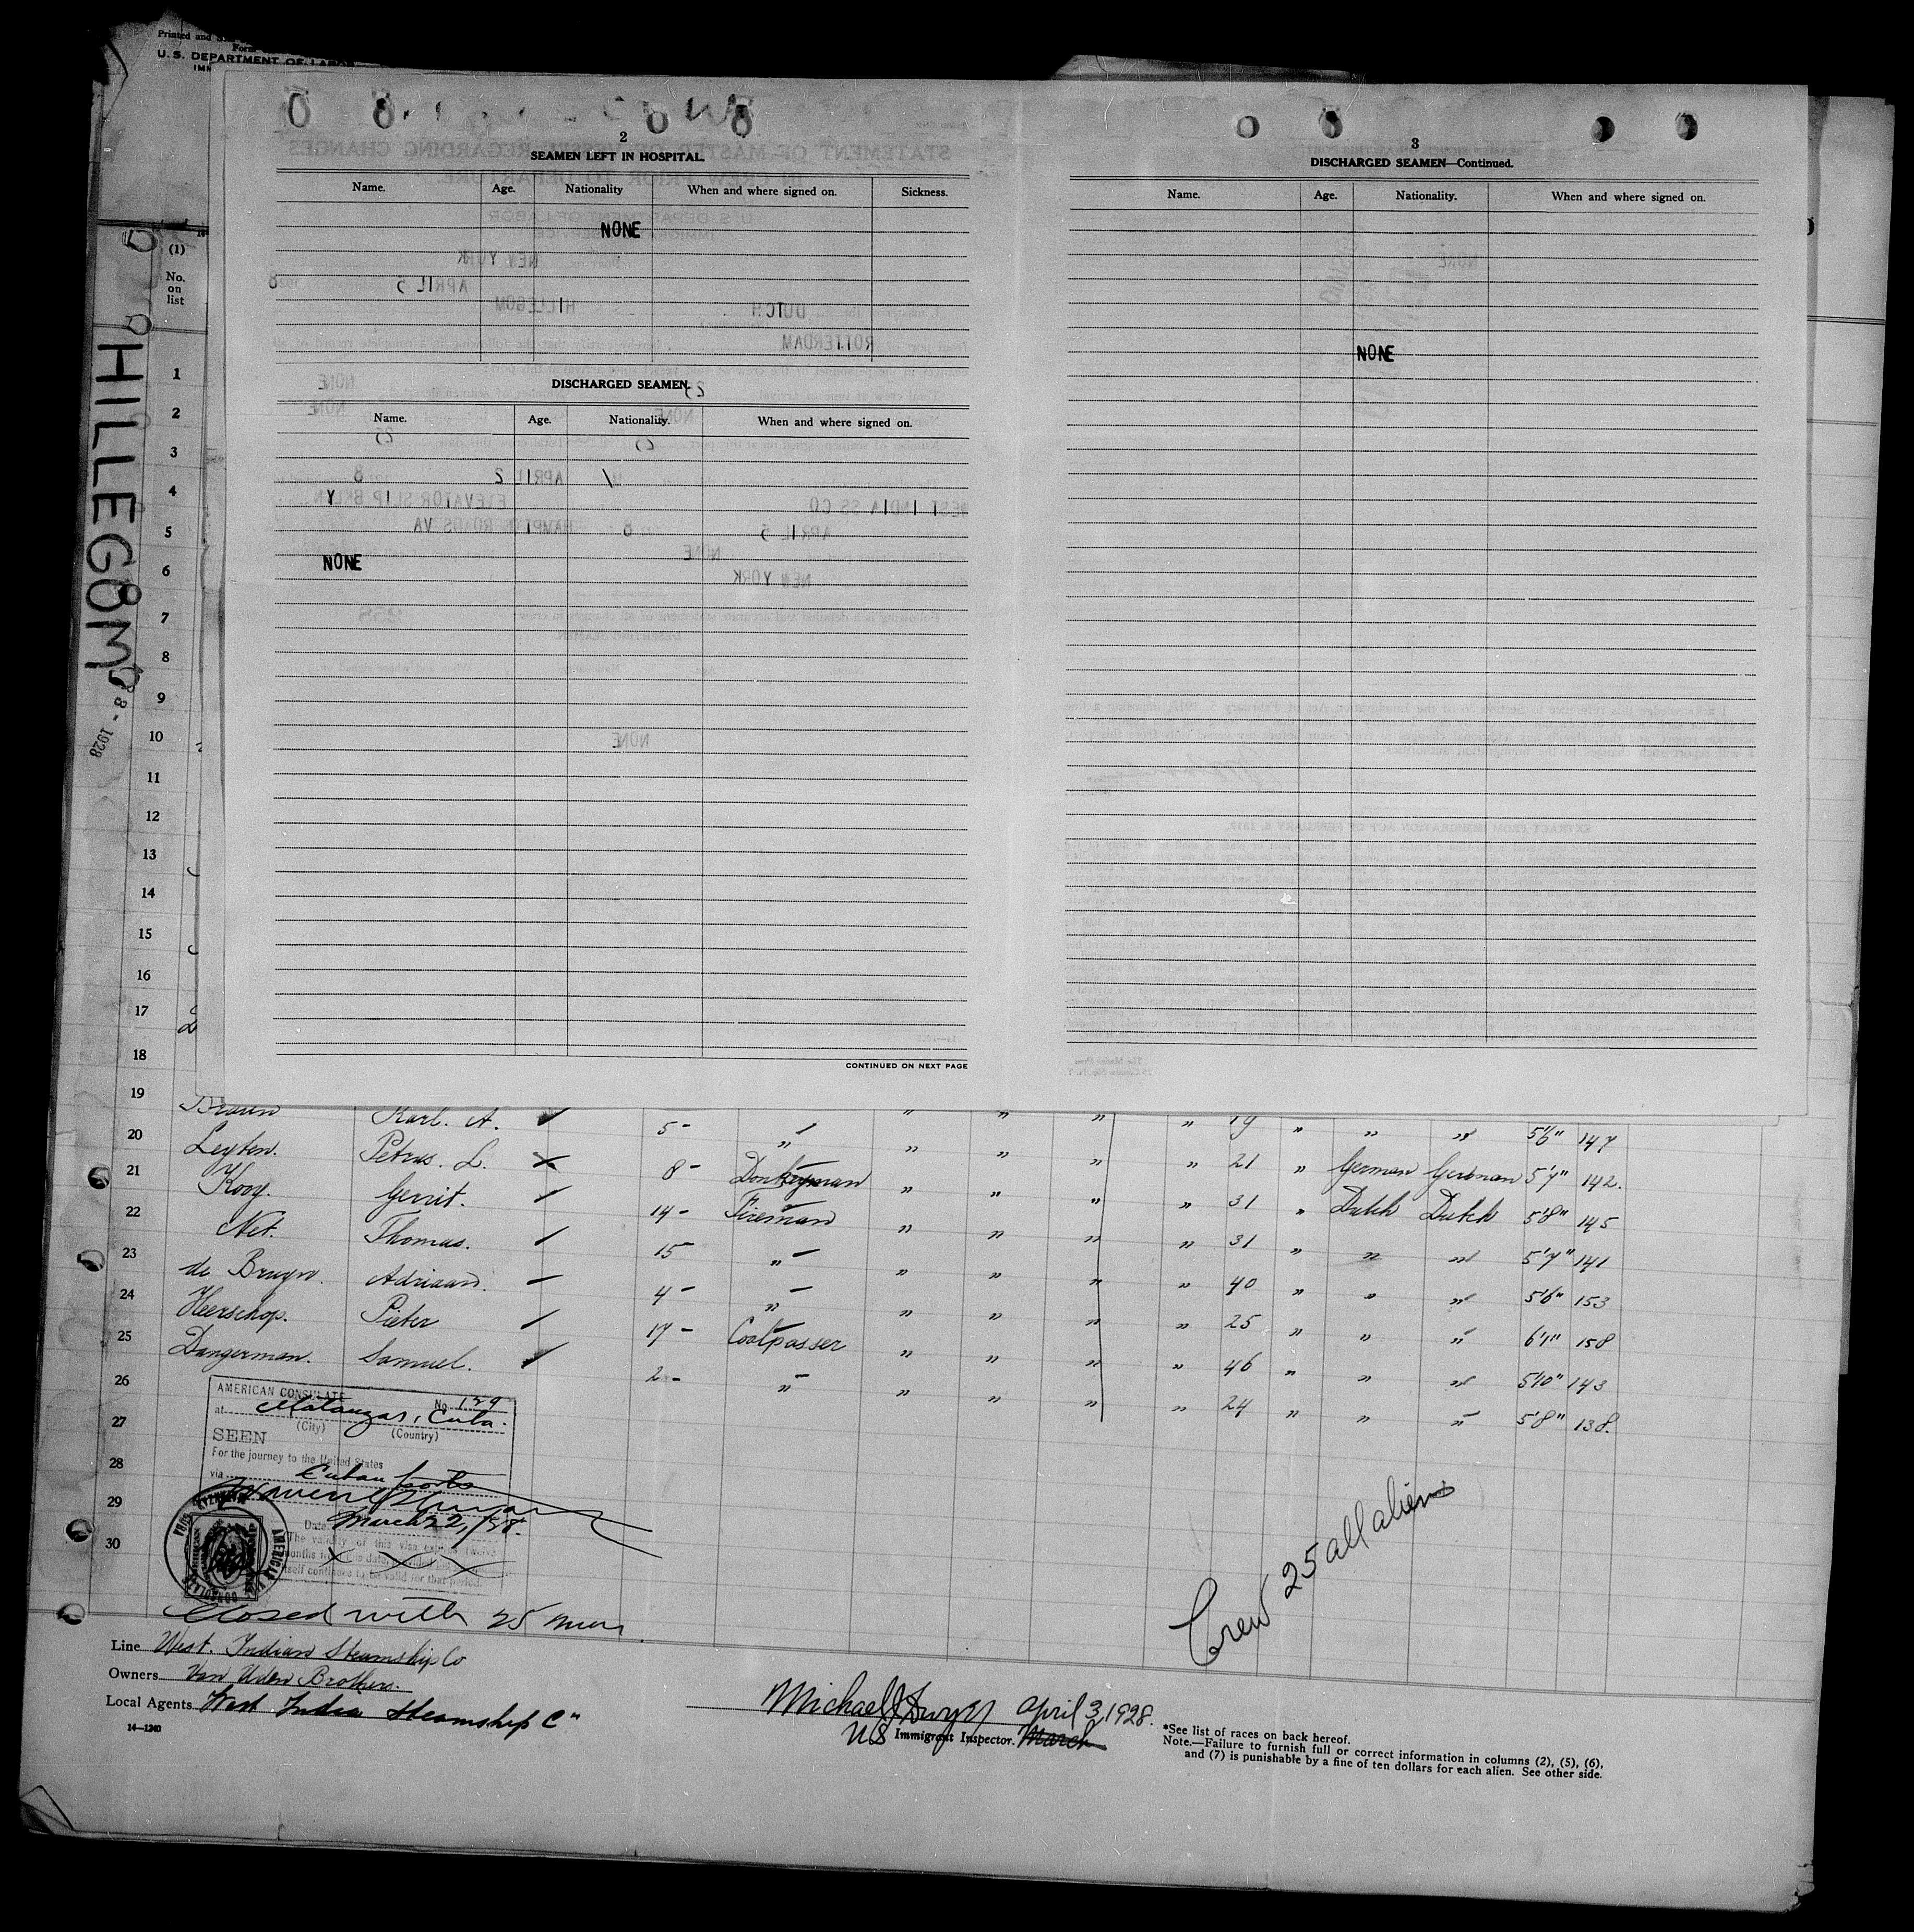 Printed and
U. S. DEPARTMENT OF LABOR
HILLEGOM
8 - 1928
(1)
No.
on
list
2
SEAMEN LEFT IN HOSPITAL.
Name. Age. Nationality When and where signed on. Sickness.
NONE
DISCHARGED SEAMEN.
Name. Age. Nationality. When and where signed on.
NONE
CONTINUED ON NEXT PAGE
3
DISCHARGED SEAMEN—Continued.
Name. Age. Nationality. When and where signed on.
NONE
1
2
3
4
5
6
7
8
9
10
11
12
13
14
15
16
17
18
19
20
21
22
23
24
25
26
27
28
29
30
Braun Karl. A. 5 - " " " " " 19 " " " 5'6" 147
Leyten. Petrus. L. 8 - Donkeyman " " " " 21 " German German 5'7" 142.
Kooy. Gerrit. 14 - Fireman " " " " 31 " Dutch Dutch 5'8" 145
Net. Thomas. 15 " " " " " 31 " " " 5'7" 141
de Bruyn. Adriaan. 4 - " " " " " 40 " " " 5'6" 153
Heerschop. Pieter 17 - Coalpasser " " " " 25 " " " 6'1" 158
Dangerman. Samuel. 2 - " " " " " 46 " " " 5'10" 143
24 " " " 5'8" 138.
AMERICAN CONSULATE
No. 129
at Matanzas, Cuba.
(City) (Country)
SEEN
For the journey to the United States
via Cuban ports
Date March 22, 1928.
The validity of this visa expires twelve
months from the date, provided the
itself continues to be valid for that period.
Closed with 25 men.
Crew 25 all aliens
Line West. Indian Steamship Co
Owners Van Uden Brothers.
Local Agents West India Steamship Co
14—1240
Michael J Dwyer April 3, 1928.
US Immigrant Inspector. March
*See list of races on back hereof.
Note.—Failure to furnish full or correct information in columns (2), (5), (6),
and (7) is punishable by a fine of ten dollars for each alien. See other side.